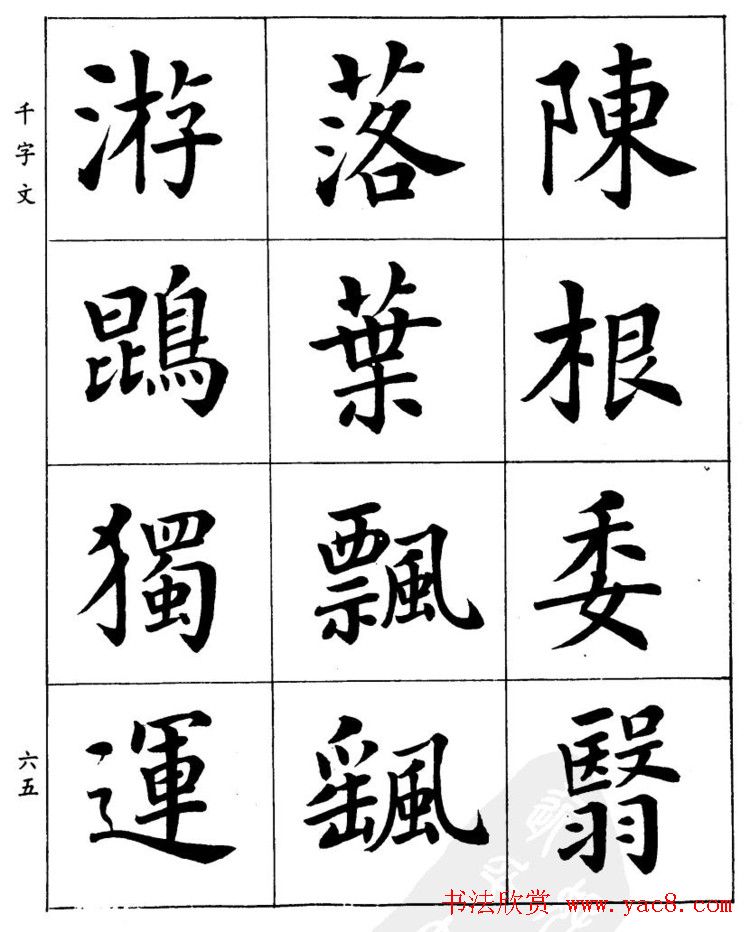 陳根委翳
落葉飄颻
游鵾獨運
千字文
六五
书法欣赏 www.yac8.com